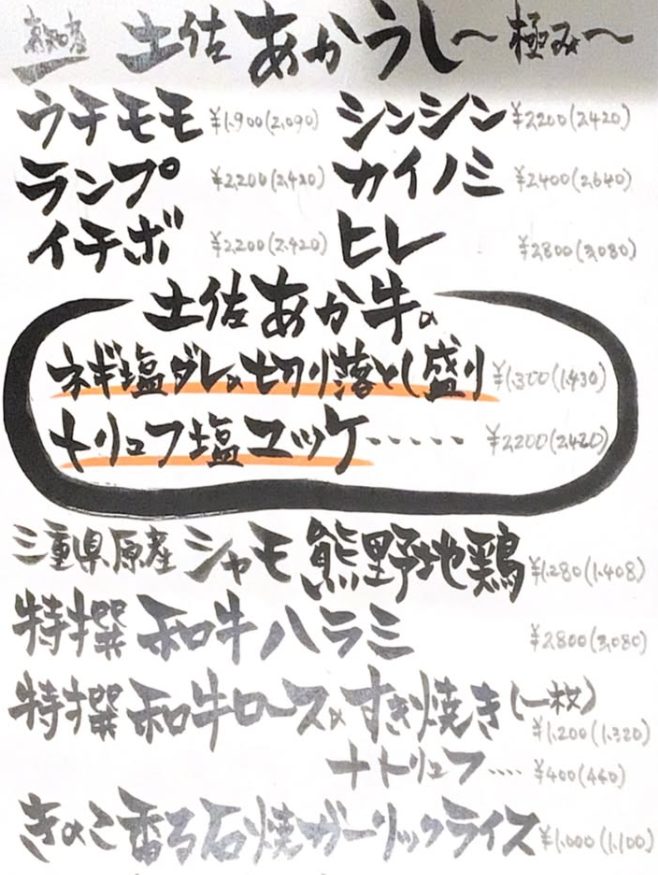 高知産 土佐あかうし〜極み〜
ウチモモ ¥1,900(2,090) シンシン ¥2200(2,420)
ランプ ¥2,200(2,420) カイノミ ¥2400(2,640)
イチボ ¥2,200(2,420) ヒレ ¥2,800(3,080)
土佐あか牛の
ネギ塩ダレの切り落とし盛り ¥1,300(1,430)
トリュフ塩ユッケ‥‥‥ ¥2200(2,420)
三重県原産 シャモ熊野地鶏 ¥1,280(1,408)
特撰 和牛ハラミ ¥2800(3,080)
特撰 和牛ロースのすき焼き(一枚)
¥1,200(1,320)
+トリュフ‥‥ ¥400(440)
きのこ香る石焼ガーリックライス ¥1,000(1,100)